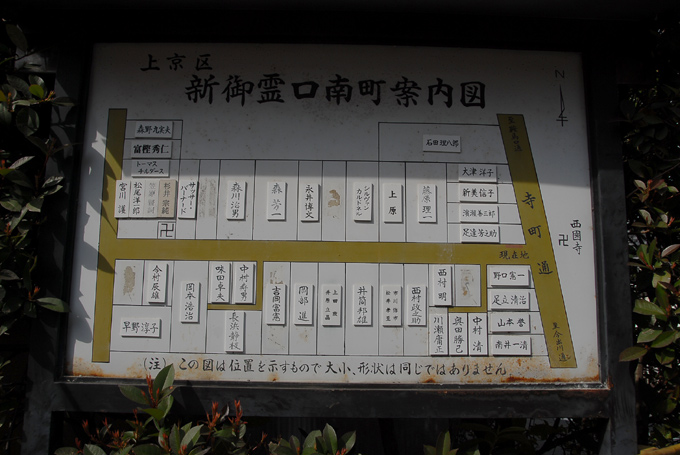 上京区
新御霊口南町案内図
N
森野九寅夫
富樫秀仁
トーマス
チルダース
石田理八郎
宮川護
松尾洋一郎
サッサー・
バーナード
森川治男
森芳一
永井博文
シルヴァン
カルドネル
上原
藤原理一
大津洋子
新美信子
足達芳之助
卍
寺町通
卍
西園寺
現在地
今村辰雄
岡本浩治
味田卓夫
中村寿男
吉岡富憲
岡部進
井筒邦雄
西村政之助
西村明
野口憲一
足立清治
山本誉
南井一清
早野淳子
長浜静枝
川瀬庸正
奥田勝己
中村清
至今出川通
(注) この図は位置を示すもので大小、形状は同じではありません